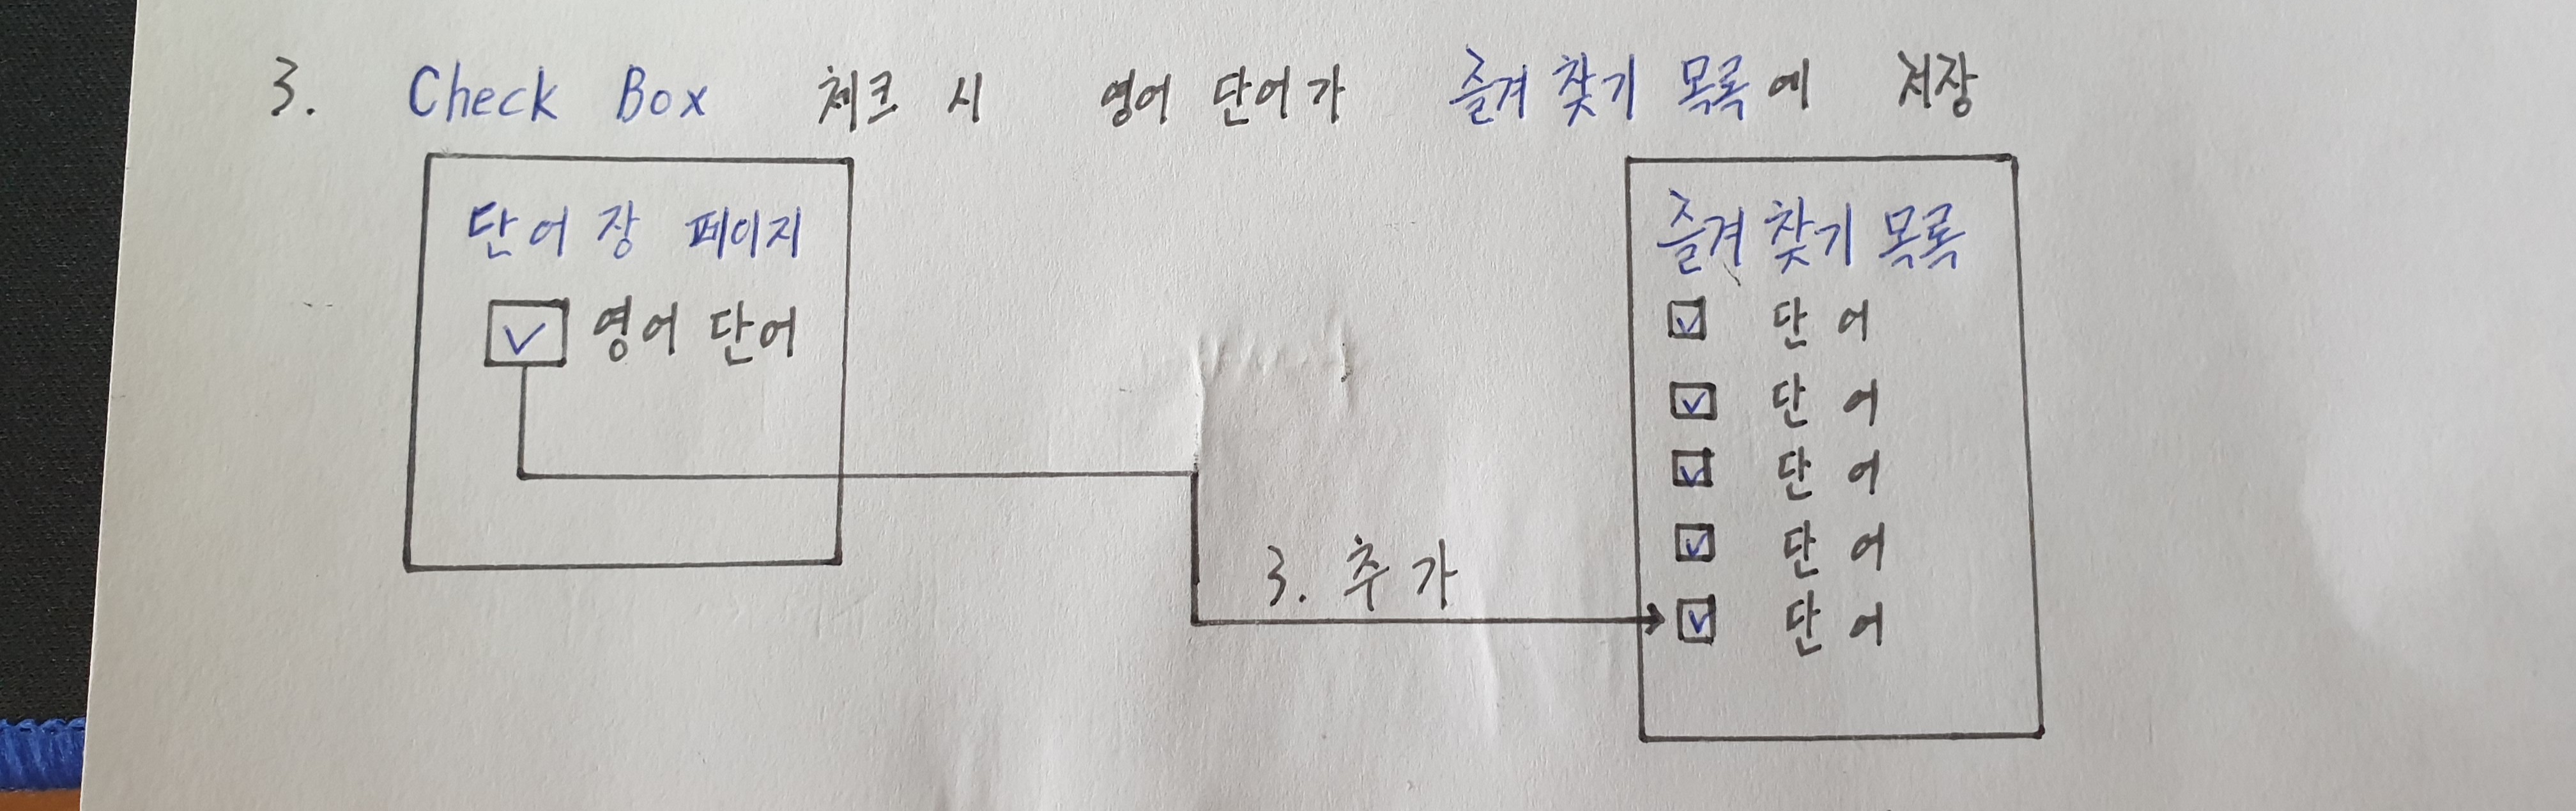 3. Check Box 체크 시 영어 단어가 즐겨찾기 목록에 저장
단어장 페이지
영어 단어
3. 추가
즐겨찾기 목록
단어
단어
단어
단어
단어